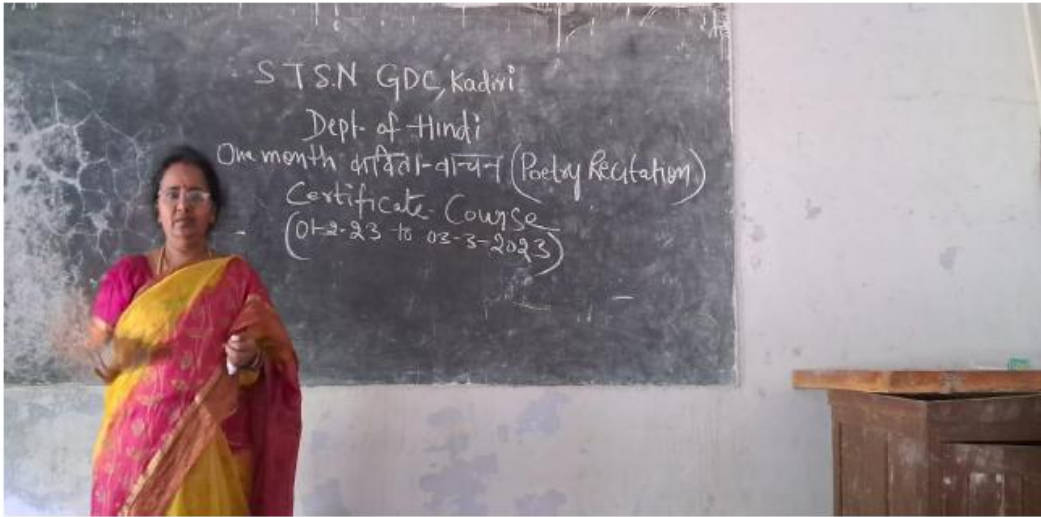 STSN GDC, Kadiri
Dept. of Hindi
One month कविता-वाचन (Poetry Recitation)
Certificate Course
(01-2-23 to 03-3-2023)